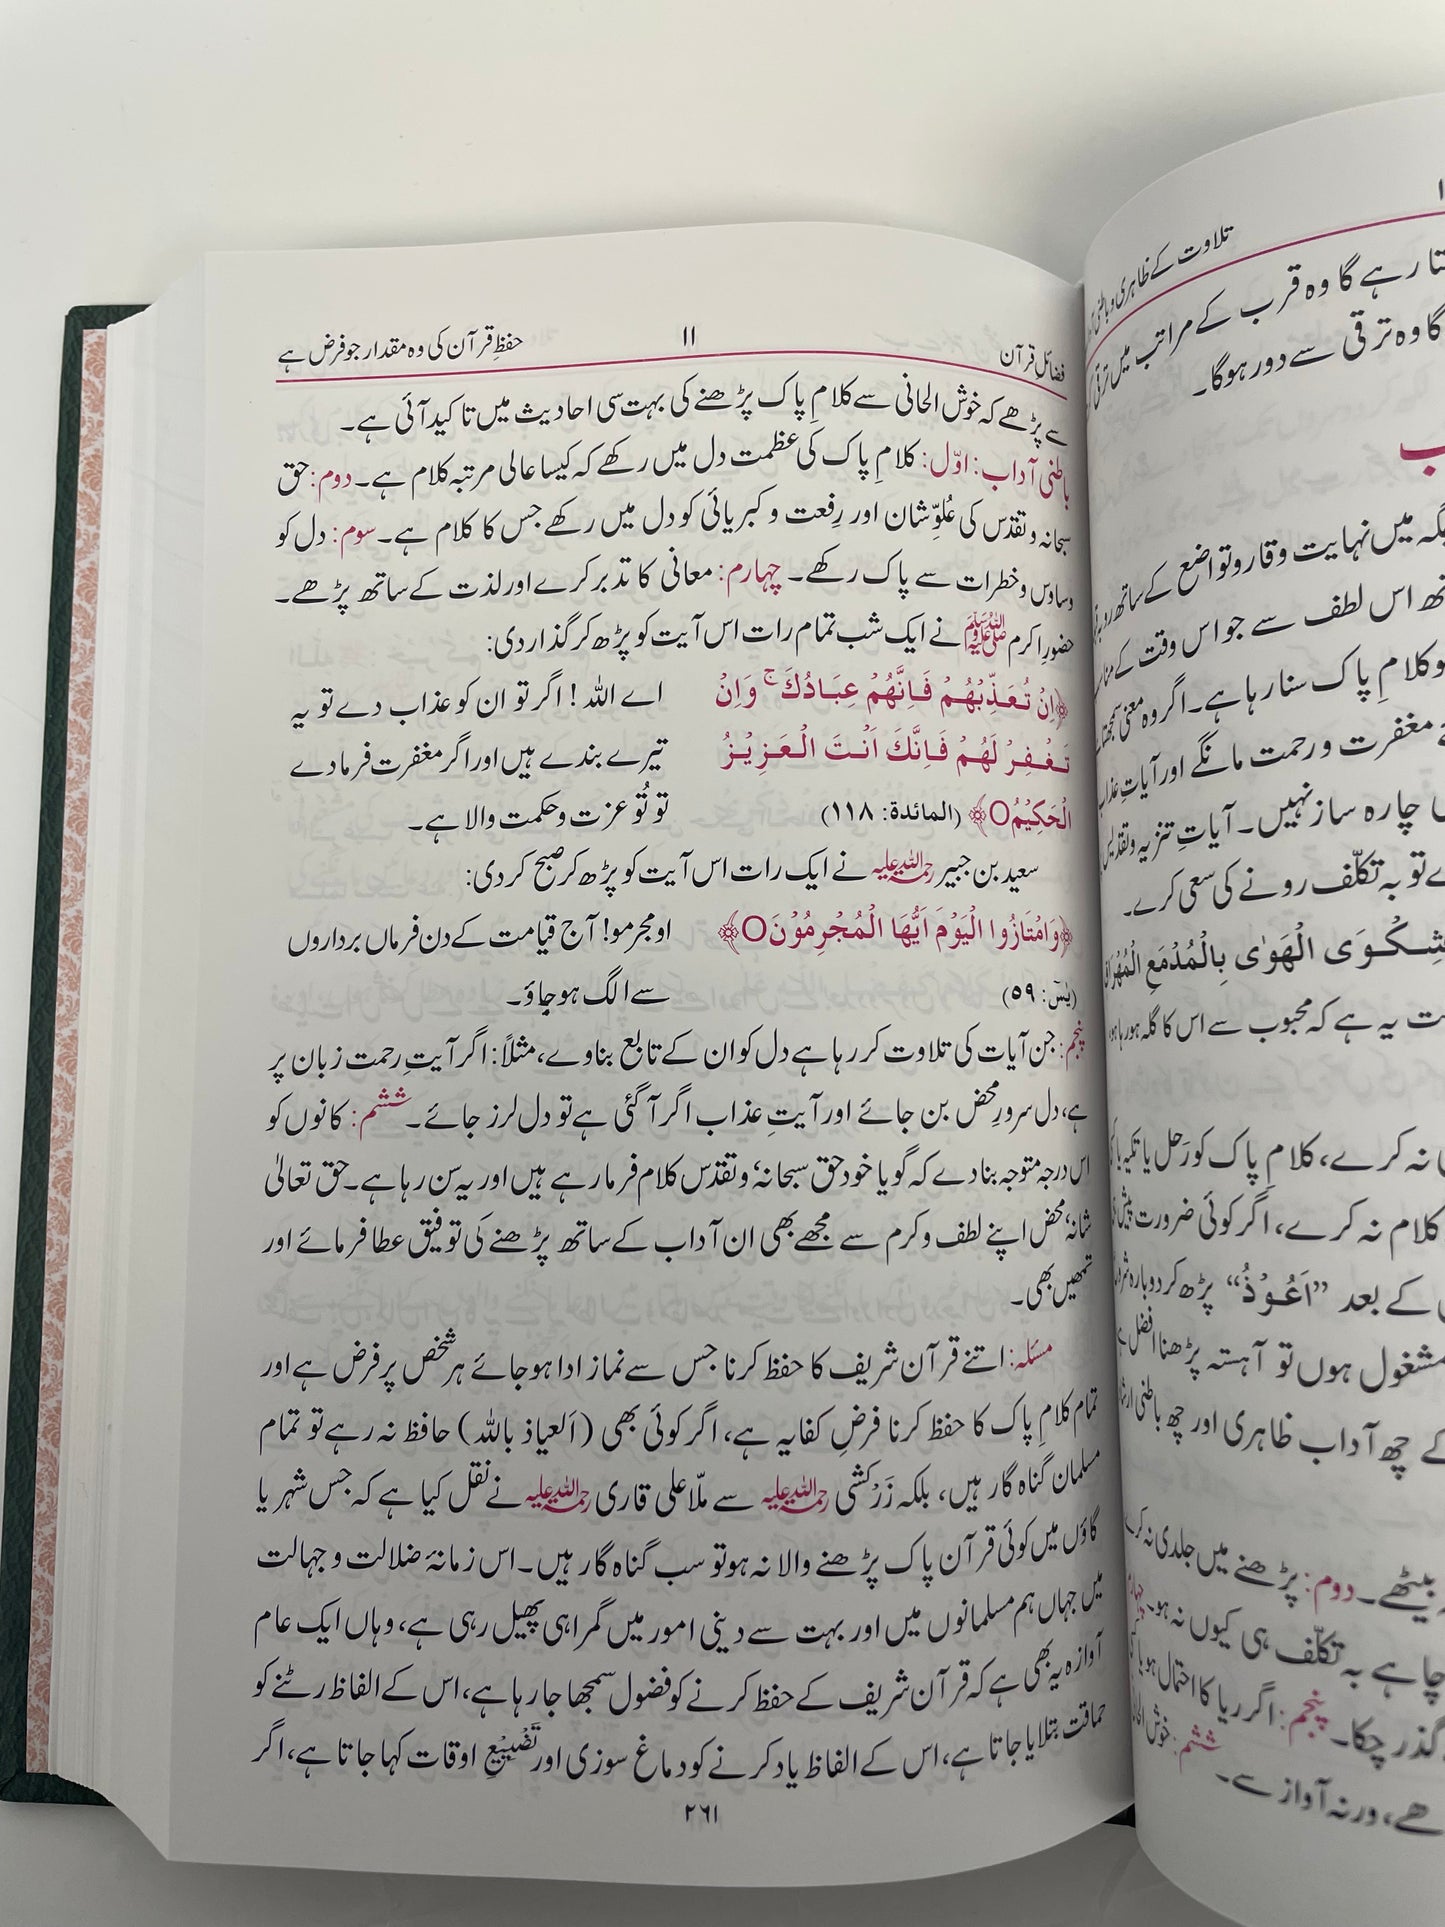 فضائلِ قرآن
۱۱
حفظِ قرآن کی وہ مقدار جو فرض ہے
سے پڑھے کہ خوش الحانی سے کلامِ پاک پڑھنے کی بہت سی احادیث میں تاکید آئی ہے۔
باطنی آداب: اوّل: کلامِ پاک کی عظمت دل میں رکھے کہ کیسا عالی مرتبہ کلام ہے۔ دوم: حق
سبحانہ وتقدّس کی عُلوِّشان اور رِفعت و کبریائی کو دل میں رکھے جس کا کلام ہے۔ سوم: دل کو
وساوس وخطرات سے پاک رکھے۔ چہارم: معانی کا تدبر کرے اور لذت کے ساتھ پڑھے۔
حضورِ اکرم ﷺ نے ایک شب تمام رات اس آیت کو پڑھ کر گذار دی:
﴿اِنْ تُعَذِّبْهُمْ فَاِنَّهُمْ عِبَادُكَ ۚ وَاِنْ
تَغْفِرْ لَهُمْ فَاِنَّكَ اَنْتَ الْعَزِيْزُ
الْحَكِيْمُ○﴾ (المائدة: ۱۱۸)
اے اللہ! اگر تو ان کو عذاب دے تو یہ
تیرے بندے ہیں اور اگر مغفرت فرما دے
تو تُو عزت وحکمت والا ہے۔
سعید بن جبیر رحمۃ اللہ علیہ نے ایک رات اس آیت کو پڑھ کر صبح کر دی:
﴿وَامْتَازُوا الْيَوْمَ اَيُّهَا الْمُجْرِمُوْنَ○﴾
(یٰسٓ: ۵۹)
او مجرمو! آج قیامت کے دن فرماں برداروں
سے الگ ہو جاؤ۔
پنجم: جن آیات کی تلاوت کر رہا ہے دل کو ان کے تابع بناوے، مثلاً: اگر آیتِ رحمت زبان پر
ہے، دل سرورِ محض بن جائے اور آیتِ عذاب اگر آ گئی ہے تو دل لرز جائے۔ ششم: کانوں کو
اس درجہ متوجہ بنا دے کہ گویا خود حق سبحانہٗ وتقدّس کلام فرما رہے ہیں اور یہ سن رہا ہے۔ حق تعالیٰ
شانہٗ محض اپنے لطف وکرم سے مجھے بھی ان آداب کے ساتھ پڑھنے کی توفیق عطا فرمائے اور
تمھیں بھی۔
مسئلہ: اتنے قرآن شریف کا حفظ کرنا جس سے نماز ادا ہو جائے ہر شخص پر فرض ہے اور
تمام کلامِ پاک کا حفظ کرنا فرضِ کفایہ ہے، اگر کوئی بھی (اَلعیاذ باللہ) حافظ نہ رہے تو تمام
مسلمان گناہ گار ہیں، بلکہ زَرکشی رحمۃ اللہ علیہ سے ملّا علی قاری رحمۃ اللہ علیہ نے نقل کیا ہے کہ جس شہر یا
گاؤں میں کوئی قرآن پاک پڑھنے والا نہ ہو تو سب گناہ گار ہیں۔ اس زمانۂ ضلالت وجہالت
میں جہاں ہم مسلمانوں میں اور بہت سے دینی امور میں گمراہی پھیل رہی ہے، وہاں ایک عام
آوازہ یہ بھی ہے کہ قرآن شریف کے حفظ کرنے کو فضول سمجھا جا رہا ہے، اس کے الفاظ رٹنے کو
حماقت بتلایا جاتا ہے، اس کے الفاظ یاد کرنے کو دماغ سوزی اور تَضْیِیعِ اوقات کہا جاتا ہے، اگر
۲۶۱
تلاوت کے ظاہری وباطنی
رہے گا وہ قرب کے مراتب میں ترقی
گا وہ ترقی سے دور ہوگا۔
میں نہایت وقار وتواضع کے ساتھ
اس لطف سے جو اس وقت کے
کلامِ پاک سنا رہا ہے۔ اگر وہ معنی سمجھتا
مغفرت ورحمت مانگے اور آیاتِ عذاب
چارہ ساز نہیں۔ آیاتِ تنزیہ وتقدیس
تو بہ تکلّف رونے کی سعی کرے۔
شِكْوَى الْهَوٰى بِالْمُدْمَعِ الْمُهْرَاقِ
یہ ہے کہ محبوب سے اس کا گلہ ہو رہا ہو،
نہ کرے، کلامِ پاک کو رَحل یا تکیہ یا
کلام نہ کرے، اگر کوئی ضرورت پیش
کے بعد ”اَعُوْذُ“ پڑھ کر دوبارہ
مشغول ہوں تو آہستہ پڑھنا افضل
چھ آداب ظاہری اور چھ باطنی
بیٹھے۔ دوم: پڑھنے میں جلدی نہ کرے
چاہے بہ تکلّف ہی کیوں نہ ہو۔
گذر چکا۔ پنجم: اگر ریا کا احتمال ہو یا
ورنہ آواز سے۔ ششم: خوش